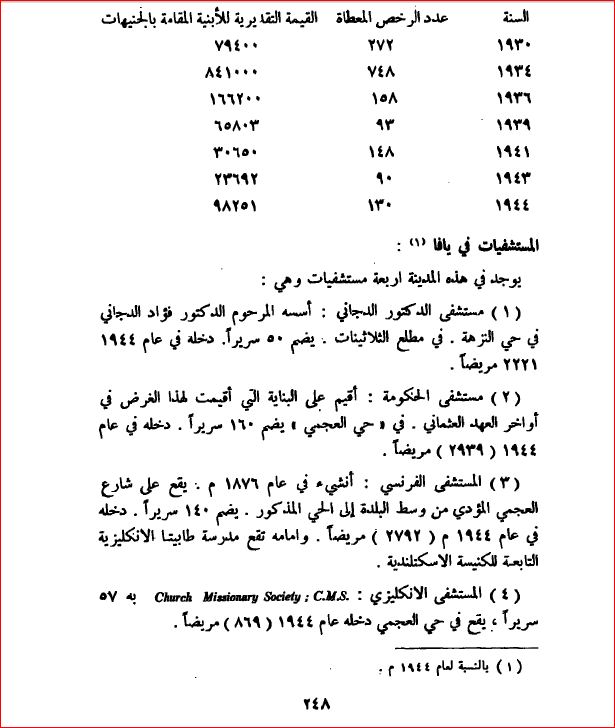 السنة عدد الرخص المعطاة القيمة التقديرية للأبنية المقامة بالجنيهات
١٩٣٠ ٢٧٢ ٧٩٤٠٠
١٩٣٤ ٧٤٨ ٨٤١٠٠٠
١٩٣٦ ١٥٨ ١٦٦٢٠٠
١٩٣٩ ٩٣ ٦٥٨٠٣
١٩٤١ ١٤٨ ٣٠٦٥٠
١٩٤٣ ٩٠ ٢٣٦٩٢
١٩٤٤ ١٣٠ ٩٨٢٥١
المستشفيات في يافا (١) :
يوجد في هذه المدينة اربعة مستشفيات وهي :
( ١ ) مستشفى الدكتور الدجاني : أسسه المرحوم الدكتور فؤاد الدجاني
في حي النزهة . في مطلع الثلاثينات . يضم ٥٠ سريراً. دخله في عام ١٩٤٤
٢٢٢١ مريضاً .
( ٢ ) مستشفى الحكومة : أقيم على البناية التي أقيمت لهذا الغرض في
أواخر العهد العثماني . في « حي العجمي » يضم ١٦٠ سريراً . دخله في عام
١٩٤٤ ( ٢٩٣٩ ) مريضاً .
( ٣ ) المستشفى الفرنسي : أنشيء في عام ١٨٧٦ م . يقع على شارع
العجمي المؤدي من وسط البلدة إلى الحي المذكور . يضم ١٤٠ سريراً . دخله
في عام ١٩٤٤ م ( ٢٧٩٢ ) مريضاً . وامامه تقع مدرسة طابيتا الانكليزية
التابعة للكنيسة الاسكتلندية .
( ٤ ) المستشفى الانكليزي : Church Missionary Society ; C.M.S. به ٥٧
سريراً ، يقع في حي العجمي دخله عام ١٩٤٤ ( ٨٦٩ ) مريضاً .
( ١ ) بالنسبة لعام ١٩٤٤ م .
٢٤٨